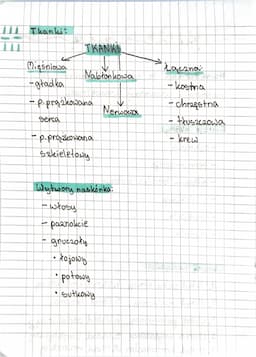 Tkanki:
TKANKI
Mięśniowa
Nabłonkowa
Łączna:
-gładka
- p. prążkowana
serca
- p. prążkowana
szkieletowy
Nerwowa
- kostna
- chrzęstna
- tłuszczowa
- krew
Wytwory naskórka:
- włosy
- paznokcie
- gruczoły
• łojowy
• potowy
• sutkowy